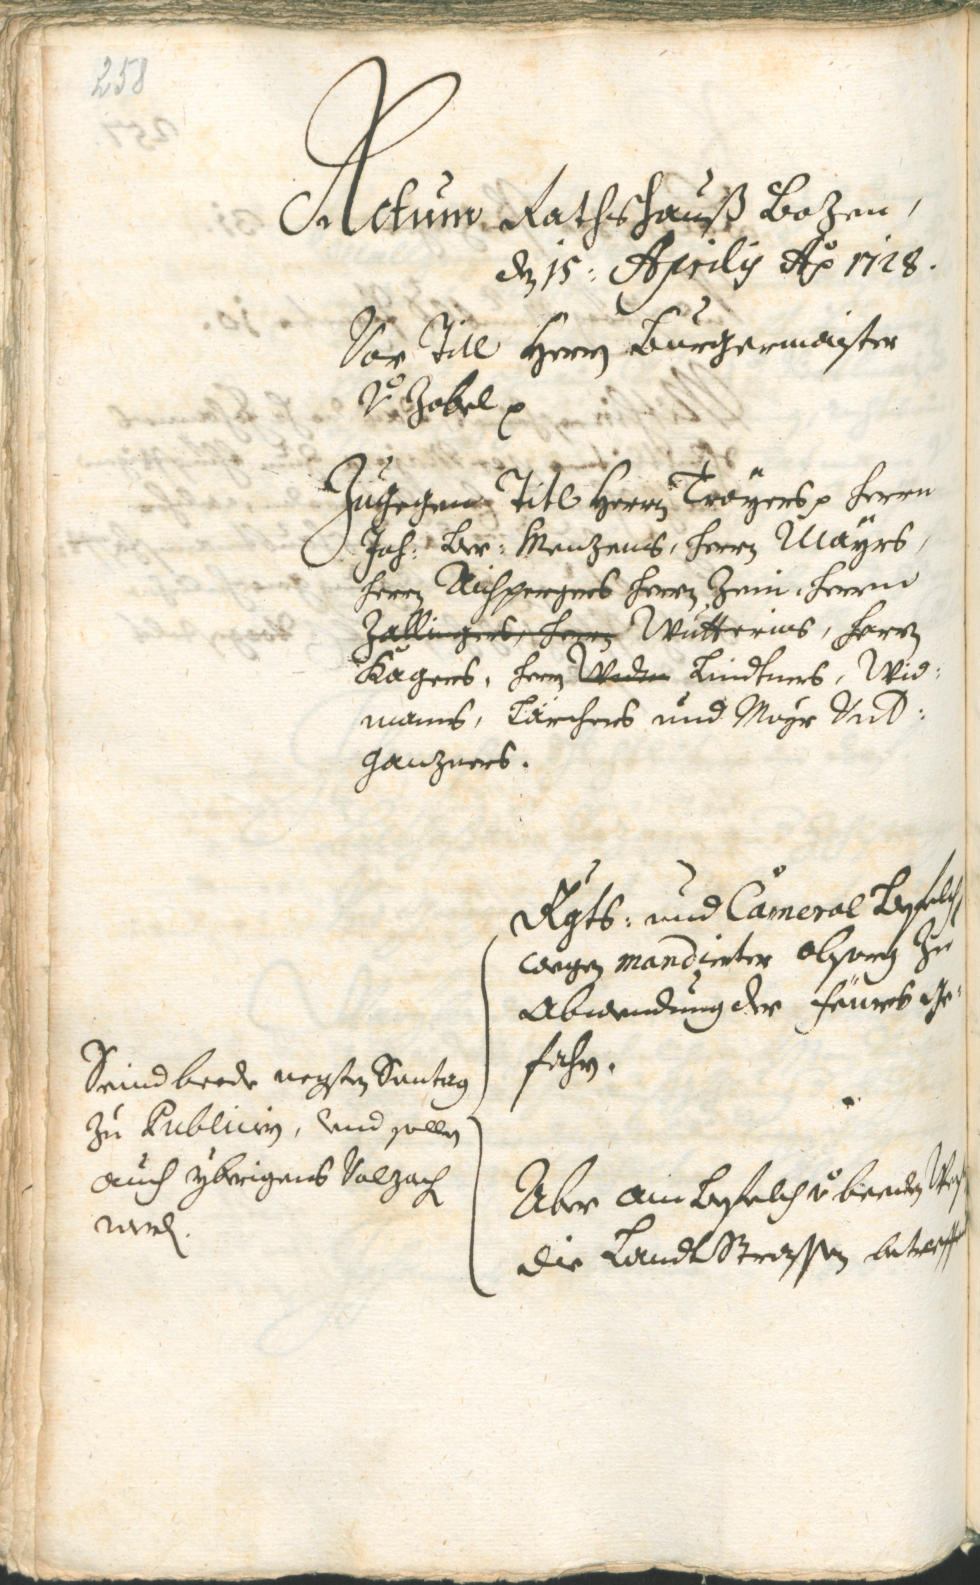 258
Actum Rathshauß Bozen,
den 15: Aprilis Ao 1728.
Vor Titl Herrn Burgermaister
v: Zobel p
Zugegen Titl Herrn Troyers p Herrn
Joh: Menzens, Herrn Mayrs,
Herrn Aichpergers Herrn Zein, Herrn
Zallingers, Herrn Wutterins, Herrn
Kagers, Herrn Widm Lindtners, Wid:
manns, Larchers und Mayr Und:
ganzners.
Rgts: und Cameral Befelch
wegen mandierter obsorg zu
Abwendung der feurs ge:
fahr.
Seind beede negsten Sontag
zu Publiciern, und sollen
auch ybrigens Volzach
werd.
Aber ain Befelch v: beeden
die Landt Strassen betreff